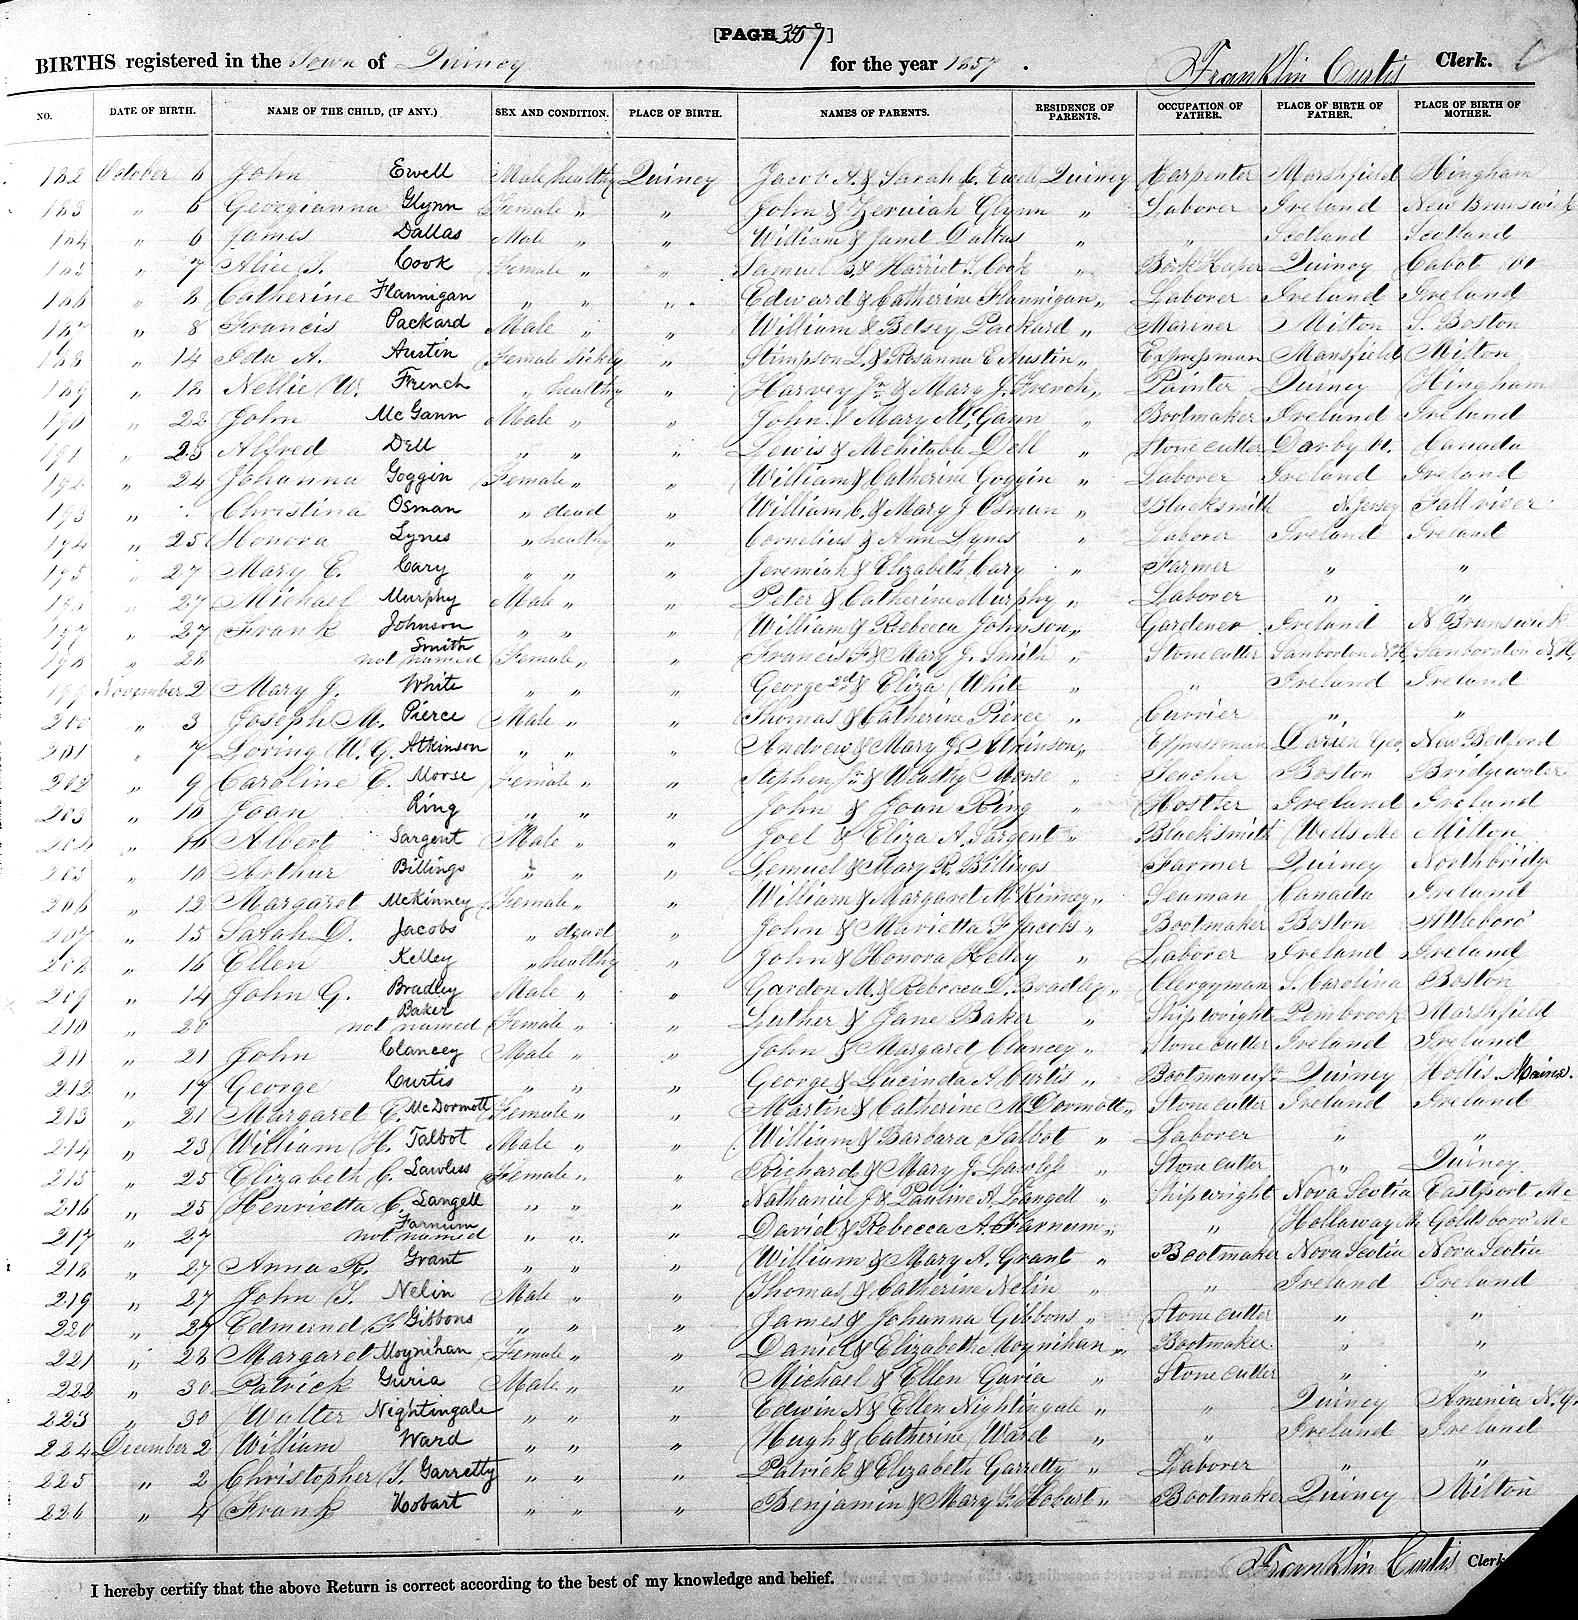 [PAGE 387]
BIRTHS registered in the Town of Quincy for the year 1857. Franklin Curtis Clerk.
NO. DATE OF BIRTH. NAME OF THE CHILD, (IF ANY.) SEX AND CONDITION. PLACE OF BIRTH. NAMES OF PARENTS. RESIDENCE OF PARENTS. OCCUPATION OF FATHER. PLACE OF BIRTH OF FATHER. PLACE OF BIRTH OF MOTHER.
182 October 6 John Ewell Male healthy Quincy Jacob A. & Sarah C. Ewell Quincy Carpenter Marshfield Hingham
183 " 6 Georgianna Glynn Female " " John & Zeruiah Glynn " Laborer Ireland New Brunswick
184 " 6 James Dallas Male " " William & Janet Dallas " " Scotland Scotland
185 " 7 Alice S. Cook Female " " Samuel B. & Harriet S. Cook " Book Keeper Quincy Cabot Vt
186 " 8 Catherine Flannigan " " " Edward & Catherine Flannigan " Laborer Ireland Ireland
187 " 8 Francis Packard Male " " William & Betsey Packard " Mariner Milton S. Boston
188 " 14 Ida A. Austin Female sickly " Stimpson L. & Rosanna E. Austin " Expressman Mansfield Milton
189 " 18 Nellie W. French " healthy " Harvey Jr. & Mary J. French " Painter Quincy Hingham
190 " 22 John McGann Male " " John & Mary McGann " Bootmaker Ireland Ireland
191 " 23 Alfred Dell " " " Lewis & Mehitable Dell " Stone cutter Darby Vt. Canada
192 " 24 Johanna Goggin Female " " William & Catherine Goggin " Laborer Ireland Ireland
193 " " Christina Osman " dead " William C. & Mary J. Osman " Blacksmith N. Jersey Fallriver
194 " 25 Honora Lynes " healthy " Cornelius & Ann Lynes " Laborer Ireland Ireland
195 " 27 Mary E. Cary " " " Jeremiah & Elizabeth Cary " Farmer " "
196 " 27 Michael Murphy Male " " Peter & Catherine Murphy " Laborer " "
197 " 27 Frank Johnson " " " William & Rebecca Johnson " Gardener Ireland N Brunswick
198 " 28 not named Smith Female " " Francis F & Mary J. Smith " Stone cutter Sanbornton N.H. Sanbornton N.H.
199 November 2 Mary J. White " " " George 2d & Eliza White " " Ireland Ireland
200 " 3 Joseph M. Pierce Male " " Thomas & Catherine Pierce " Currier " "
201 " 7 Loring W. G. Atkinson " " " Andrew & Mary J. Atkinson " Expressman Darien Geo. New Bedford
202 " 9 Caroline E. Morse Female " " Stephen Jr. & Morse " Teacher Boston Bridgewater
203 " 10 Joan Ring " " " John & Joan Ring " Hostler Ireland Ireland
204 " 10 Albert Sargent Male " " Joel & Eliza A. Sargent " Blacksmith Wells Me Milton
205 " 10 Arthur Billings " " " Lemuel & Mary R. Billings Farmer Quincy Northbridge
206 " 12 Margaret McKinney Female " " William & Margaret McKinney " Seaman Canada Ireland
207 " 15 Sarah D. Jacobs " dead " John & Marietta F Jacobs " Bootmaker Boston Attleboro'
208 " 16 Ellen Kelley " healthy " John & Honora Kelley " Laborer Ireland Ireland
209 " 14 John G. Bradley Male " " Gardon M. & Rebecca D. Bradley " Clergyman S. Carolina Boston
210 " 20 not named Baker Female " " Luther & Jane Baker " Shipwright Pembrook Marshfield
211 " 21 John Clancey Male " " John & Margaret Clancey " Stone Cutter Ireland Ireland
212 " 17 George Curtis " " " George & Lucinda A. Curtis " Bootmanuft. Quincy Hollis Maine.
213 " 21 Margaret E. McDormott Female " " Martin & Catherine McDormott " Stone cutter Ireland Ireland
214 " 23 William H. Talbot Male " " William & Barbara Talbot " Laborer " "
215 " 25 Elizabeth C. Lawless Female " " Richard & Mary J. Lawless " Stone cutter " Quincy
216 " 25 Henrietta C. Langell " " " Nathaniel J. & Pauline A. Langell " Shipwright Nova Scotia Eastport Me
217 " 27 not named Farnum " " " David & Rebecca A. Farnum " " Hollaway M Goldsboro' Me
218 " 27 Anna R. Grant " " " William & Mary A. Grant " Bootmaker Nova Scotia Nova Scotia
219 " 27 John S. Nelin Male " " Thomas & Catherine Nelin " " Ireland Ireland
220 " 27 Edmund F Gibbons " " " James & Johanna Gibbons " Stone cutter " "
221 " 28 Margaret Moynihan Female " " Daniel & Elizabeth Moynihan " Bootmaker " "
222 " 30 Patrick Guria Male " " Michael & Ellen Guria " Stone cutter " "
223 " 30 Walter Nightingale " " " Edwin N & Ellen Nightingale " " Quincy Amenia N.Y.
224 December 2 William Ward " " " Hugh & Catherine Ward " " Ireland Ireland
225 " 2 Christopher S. Garretty " " " Patrick & Elizabeth Garretty " Laborer " "
226 " 4 Frank Hobart " " " Benjamin & Mary F. Hobart " Bootmaker Quincy Milton
I hereby certify that the above Return is correct according to the best of my knowledge and belief. Franklin Curtis Clerk